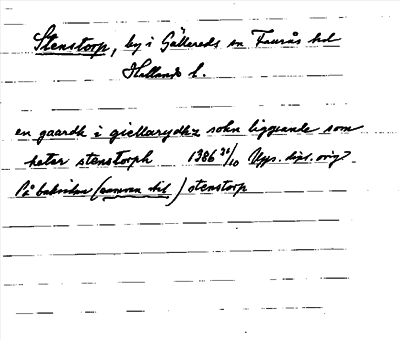 Stenstorp, by i Gällareds sn Faurås hd
Hallands l.
en gaardh i giellarydhz sokn liggiande som
heter stenstorph 1386 31/10 Upps. dipl. orig.
På baksidan (samma hd) stenstorp